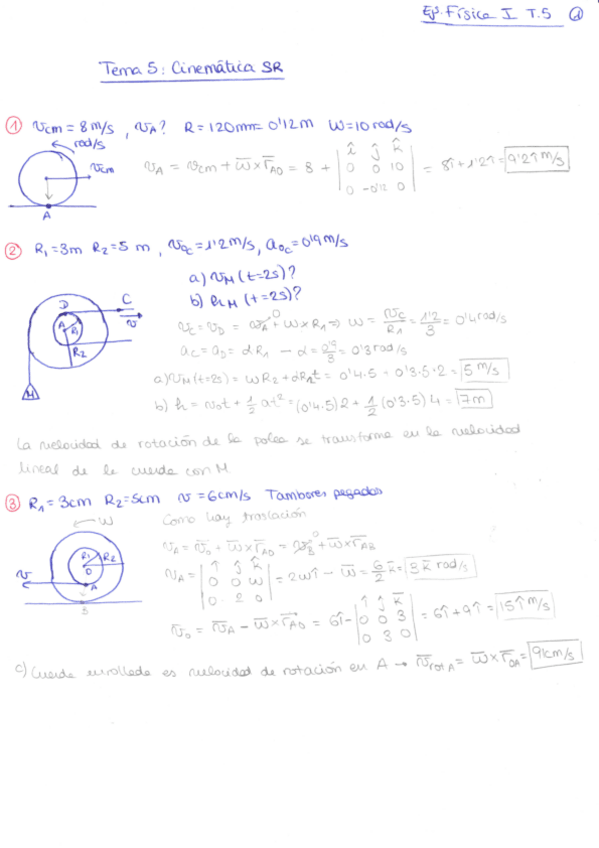 Ejs. Física I T.5 1
Tema 5: Cinemática SR
① Vcm = 8 m/s , VA? R = 120mm = 0'12 m W = 10 rad/s
rad/s
Vcm
A
VA = Vcm + w̄ × r̄AO = 8 + | î ĵ k̂ ; 0 0 10 ; 0 -0'12 0 | = 8î + 1'2î = 9'2î m/s
② R1 = 3m R2 = 5 m , Voc = 1'2 m/s , aoc = 0'9 m/s
a) VM (t=2s)?
b) hM (t=2s)?
D C
A R1 v
R2
M
Vc = VD = VA⁰ + W × R1 ⇒ W = Vc/R1 = 1'2/3 = 0'4 rad/s
ac = aD = αR1 → α = 0'9/3 = 0'3 rad/s
a) VM (t=2s) = WR2 + αR2t = 0'4·5 = 0'3·5·2 = 5 m/s
b) h = v0t + 1/2 at² = (0'4·5)2 + 1/2 (0'3·5) 4 = 7m
La velocidad de rotación de la polea se transforma en la velocidad
lineal de la cuerda con M
③ R1 = 3cm R2 = 5cm v = 6cm/s Tambores pegados
W
Como hay traslación
R1 R2
O
v A
B
VA = V̄O + w̄ × r̄AO = VB⁰ + w̄ × r̄AB
VA = | î ĵ k̂ ; 0 0 w ; 0 -2 0 | = 2wî → w̄ = 6/2 k̄ = 3 k̄ rad/s
V̄O = V̄A − w̄ × r̄AO = 6î − | î ĵ k̄ ; 0 0 3 ; 0 3 0 | = 6î + 9î = 15î m/s
c) Cuerda enrollada es velocidad de rotación en A → V̄rot A = w̄ × r̄OA = 9î cm/s